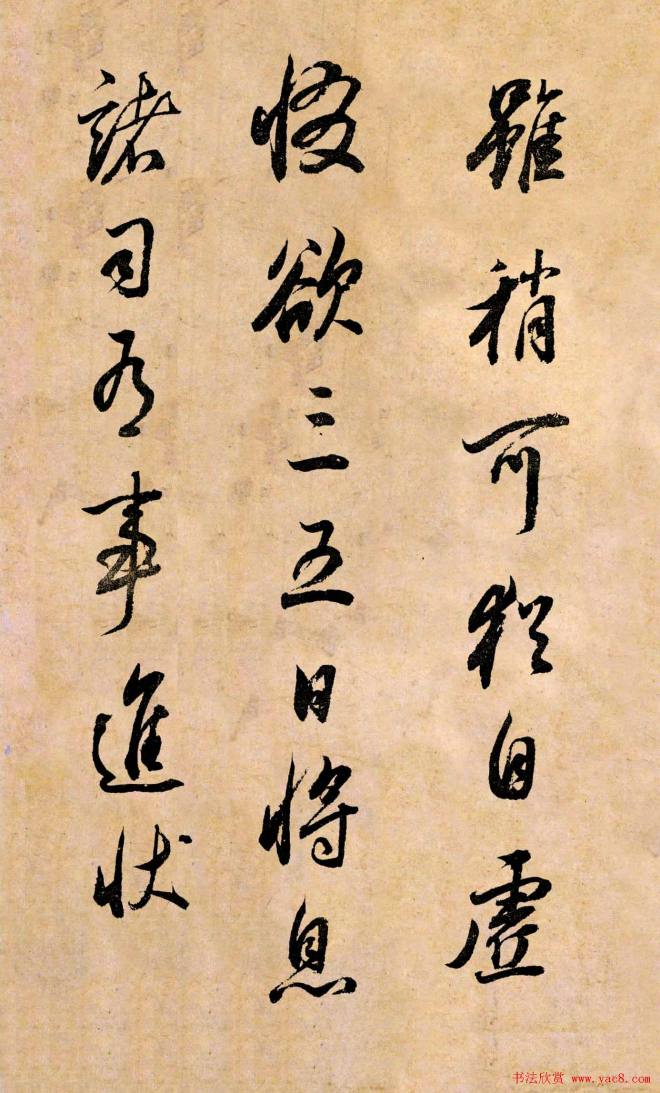 雖稍可猶自虛
惙欲三五日將息
諸司有事進狀
书法欣赏 www.yac8.com